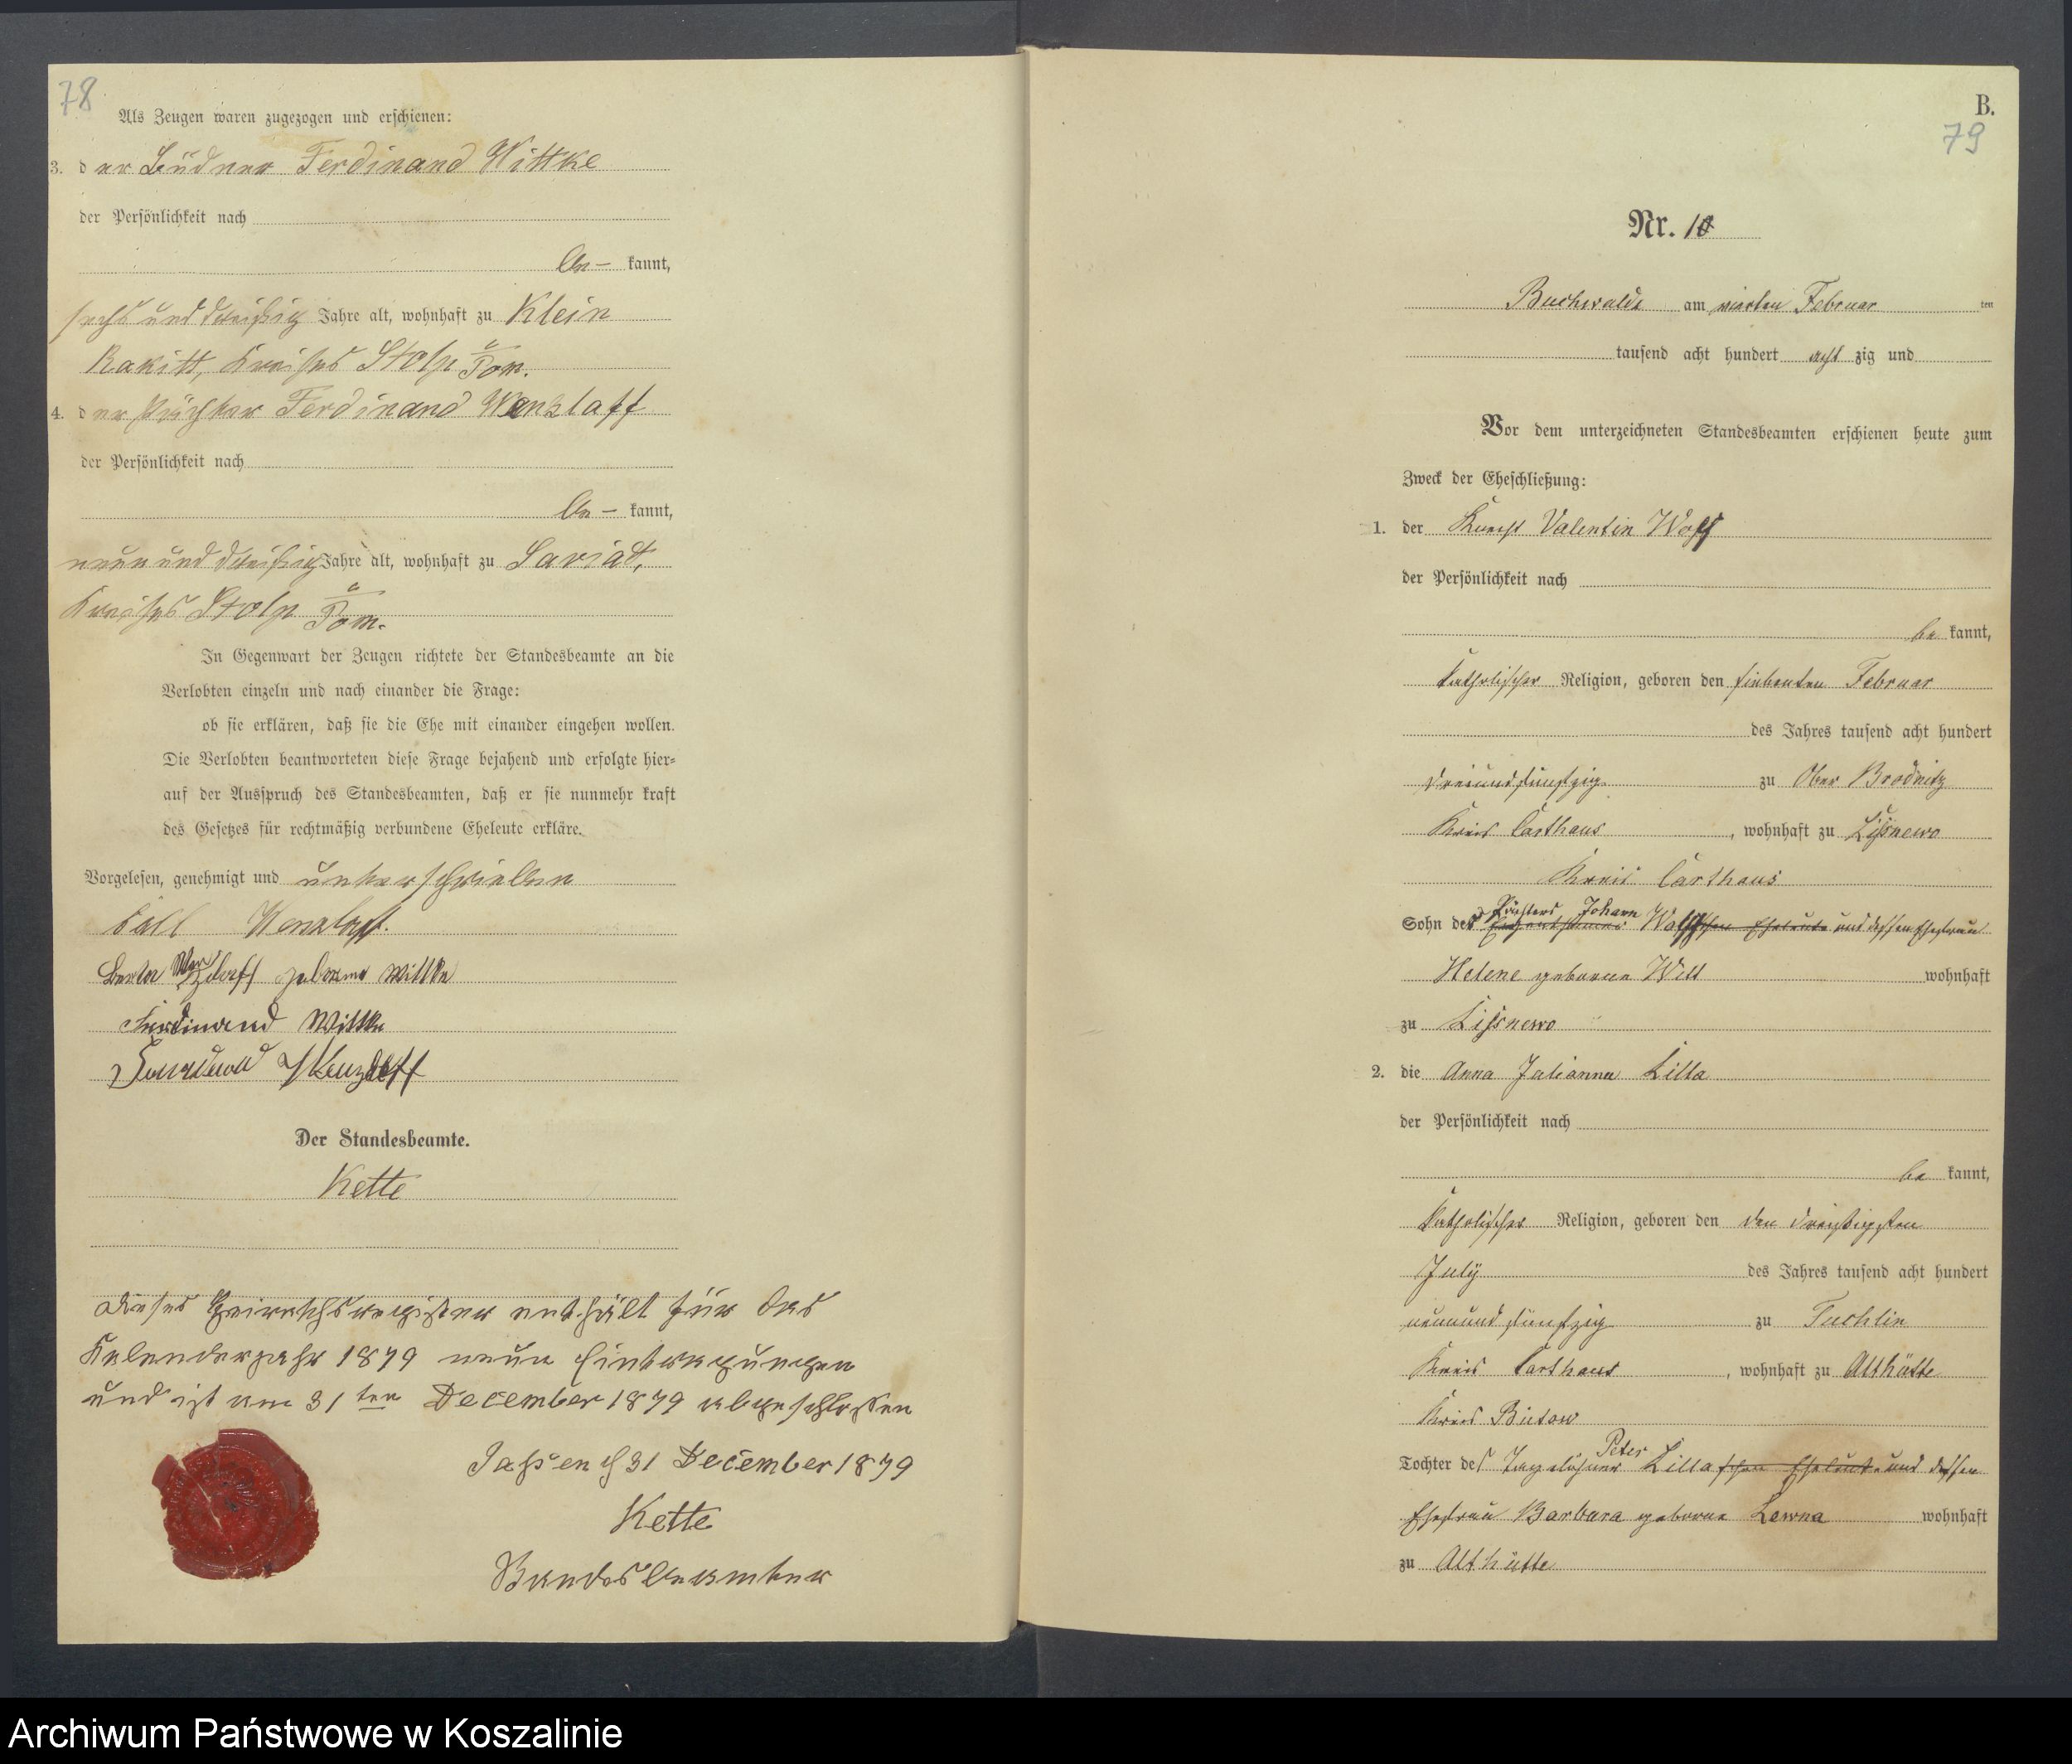 78
Als Zeugen waren zugezogen und erschienen:
3. der Büdner Ferdinand Wittke
der Persönlichkeit nach
be- kannt,
sechs und dreißig Jahre alt, wohnhaft zu Klein
Rakitt, Kreises Stolp i/Pom.
4. der Pächter Ferdinand Wenzlaff
der Persönlichkeit nach
be- kannt,
neun und dreißig Jahre alt, wohnhaft zu
Kreises Stolp i/Pom.
In Gegenwart der Zeugen richtete der Standesbeamte an die
Verlobten einzeln und nach einander die Frage:
ob sie erklären, daß sie die Ehe mit einander eingehen wollen.
Die Verlobten beantworteten diese Frage bejahend und erfolgte hier-
auf der Ausspruch des Standesbeamten, daß er sie nunmehr kraft
des Gesetzes für rechtmäßig verbundene Eheleute erkläre.
Vorgelesen, genehmigt und unterschrieben
Wenzlaff.
geborene Wittke
Ferdinand Wittke
Wenzlaff
Der Standesbeamte.
Kette
Dieses Heirathsregister enthält für das
Kalenderjahr 1879 neun Eintragungen
und ist am 31ten December 1879 abgeschlossen
Jassen d 31 December 1879
Kette
Standesbeamter
B.
79
Nr. 10
Buchwalde am vierten Februar ten
tausend acht hundert acht zig und
Vor dem unterzeichneten Standesbeamten erschienen heute zum
Zweck der Eheschließung:
1. der Knecht Valentin Wolff
der Persönlichkeit nach
be kannt,
katholischer Religion, geboren den siebenten Februar
des Jahres tausend acht hundert
dreiundfünfzig zu Ober Brodnitz
Kreis Carthaus, wohnhaft zu Lißnewo
Kreis Carthaus
Sohn des Pächters Johann Wolffschen Eheleute und dessen Ehefrau
Helene geborene Witt wohnhaft
zu Lißnewo
2. die Anna Julianna Lilla
der Persönlichkeit nach
be kannt,
katholischer Religion, geboren den den dreißigsten
July des Jahres tausend acht hundert
neunundfünfzig zu Tuchlin
Kreis Carthaus, wohnhaft zu Althütte
Kreis Bütow
Tochter des Tagelöhner Peter Lillaschen Eheleute und dessen
Ehefrau Barbara geborne Lewna wohnhaft
zu Althütte
Archiwum Państwowe w Koszalinie